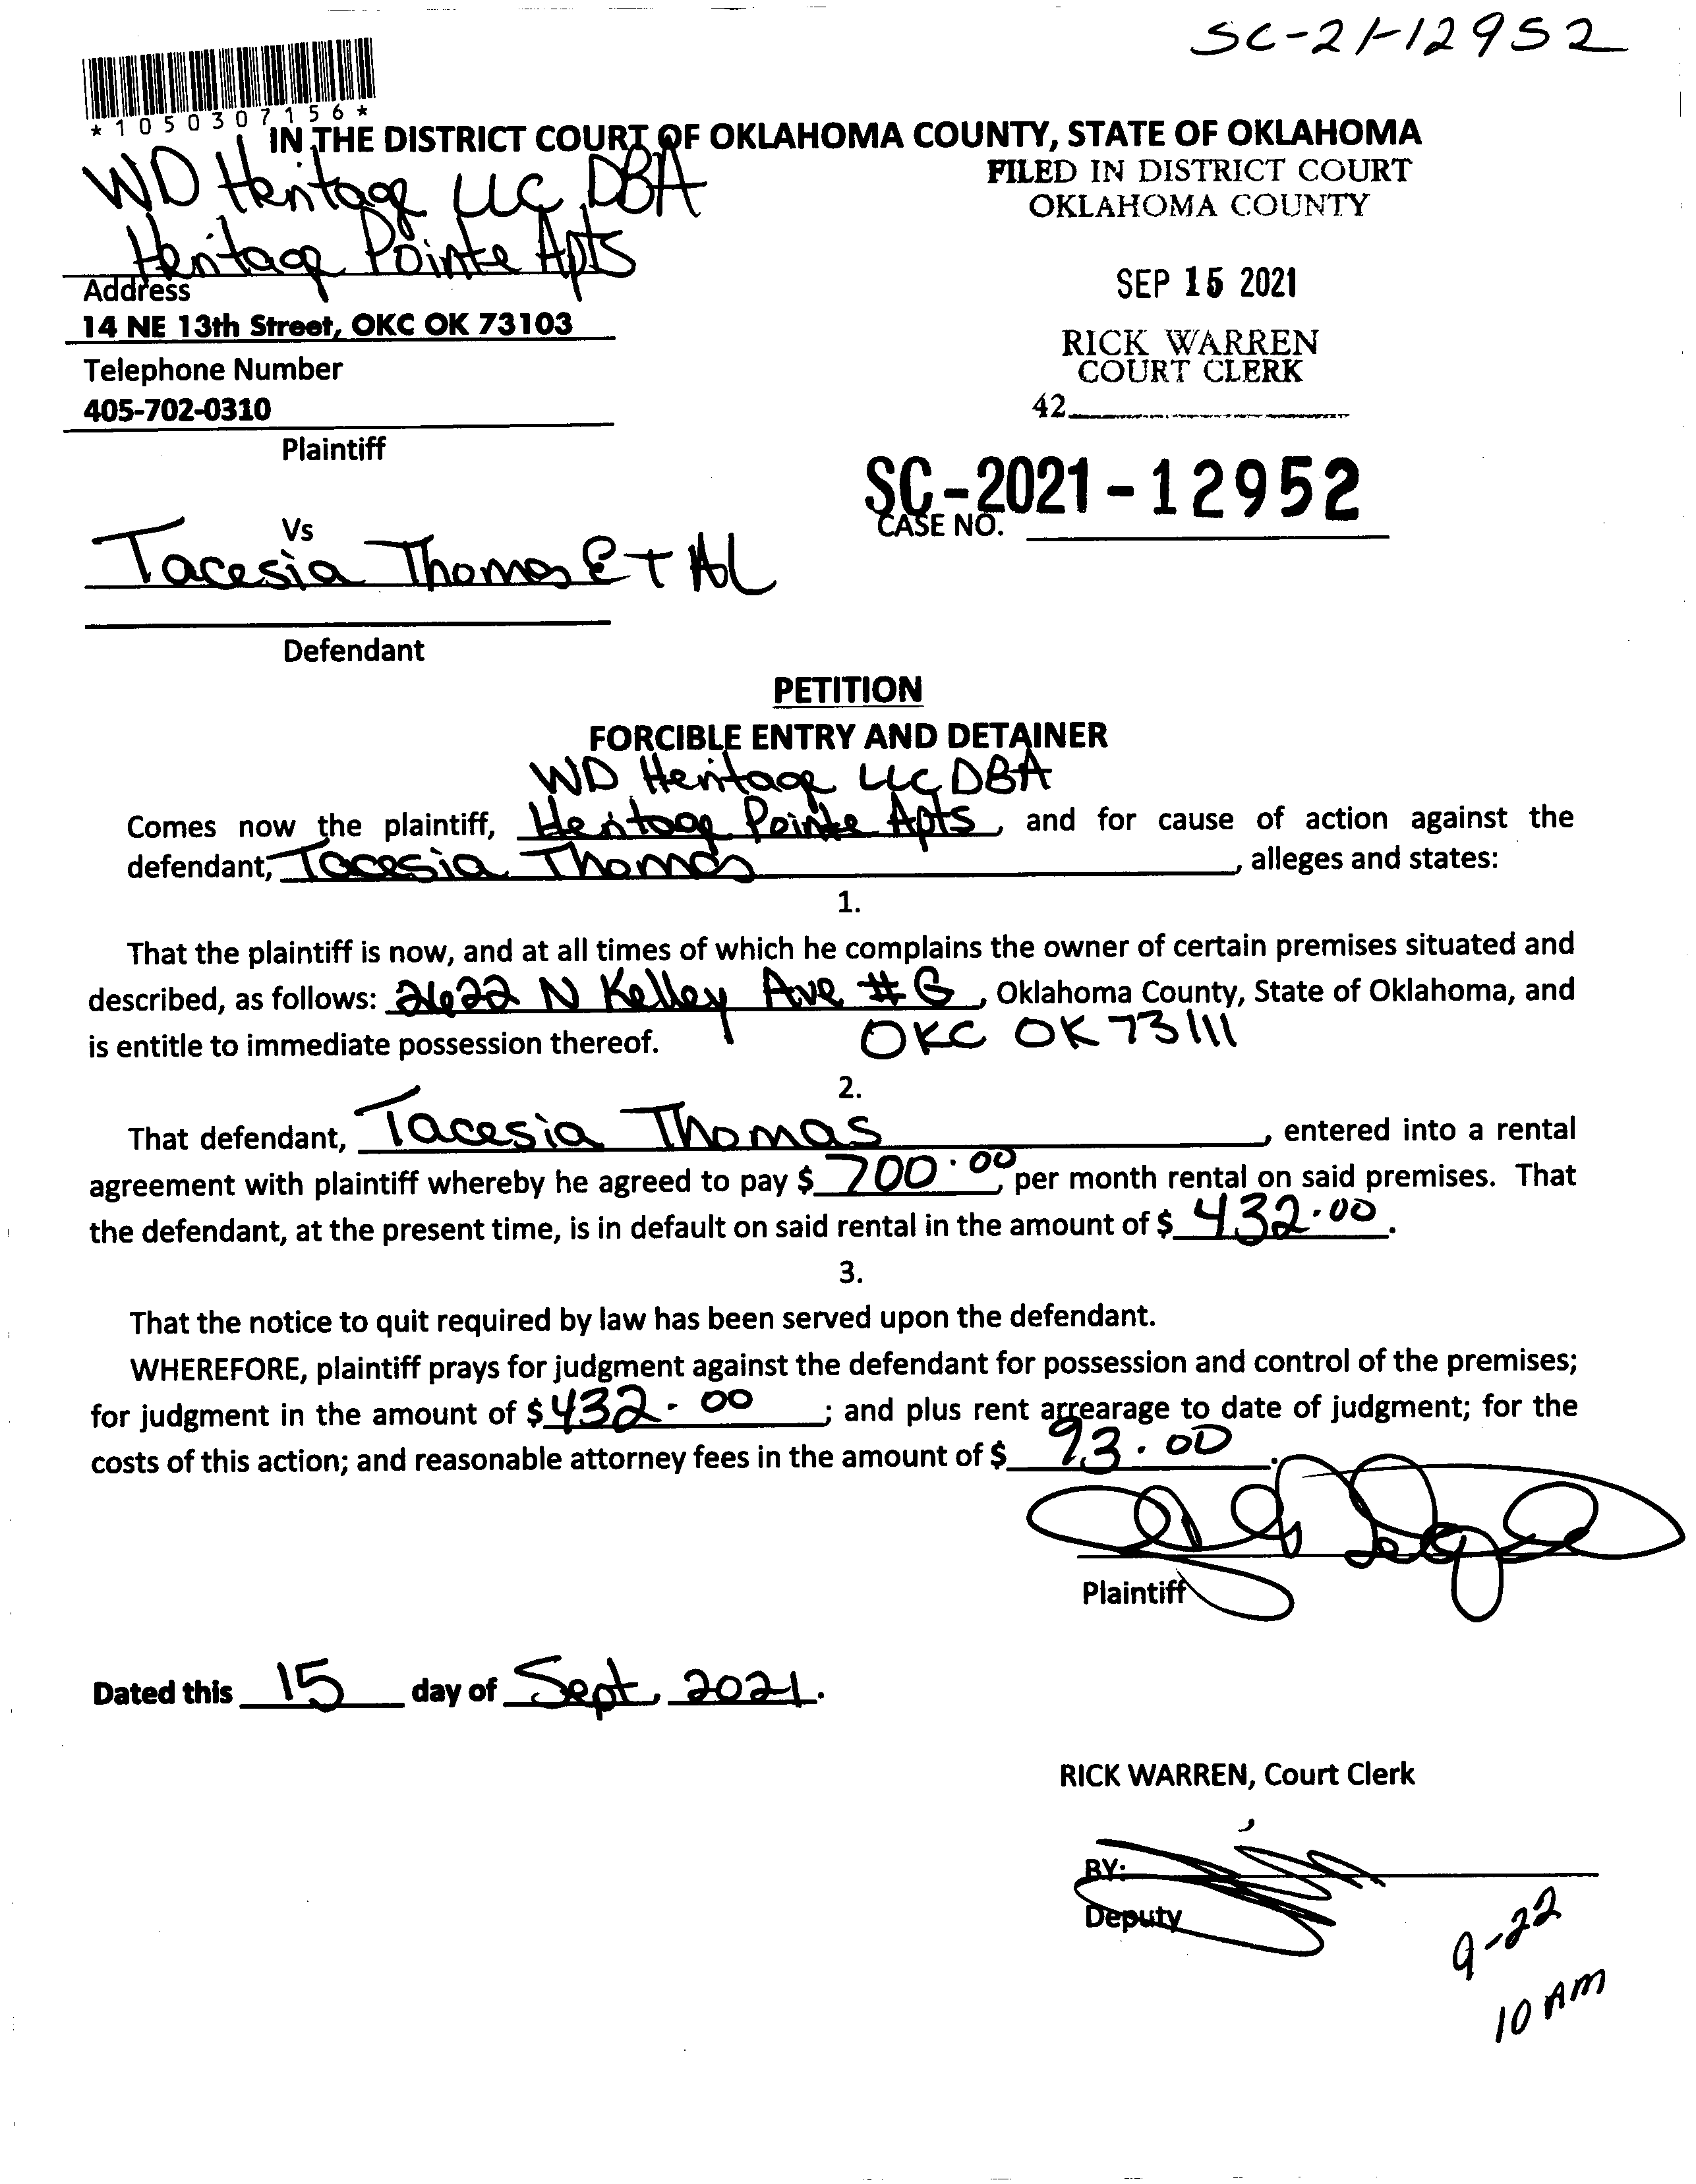 SC-21-12952
*1050307156*
IN THE DISTRICT COURT OF OKLAHOMA COUNTY, STATE OF OKLAHOMA
WD Heritage LLC DBA
Heritage Pointe Apts
FILED IN DISTRICT COURT
OKLAHOMA COUNTY
SEP 15 2021
RICK WARREN
COURT CLERK
42
Address
14 NE 13th Street, OKC OK 73103
Telephone Number
405-702-0310
Plaintiff
SC-2021-12952
CASE NO.
Vs
Tacesia Thomas ET AL
Defendant
PETITION
FORCIBLE ENTRY AND DETAINER
WD Heritage LLC DBA
Comes now the plaintiff, Heritage Pointe Apts, and for cause of action against the
defendant, Tacesia Thomas, alleges and states:
1.
That the plaintiff is now, and at all times of which he complains the owner of certain premises situated and
described, as follows: 2622 N Kelley Ave #G, Oklahoma County, State of Oklahoma, and
is entitle to immediate possession thereof. OKC OK 73111
2.
That defendant, Tacesia Thomas, entered into a rental
agreement with plaintiff whereby he agreed to pay $ 700.00, per month rental on said premises. That
the defendant, at the present time, is in default on said rental in the amount of $ 432.00.
3.
That the notice to quit required by law has been served upon the defendant.
WHEREFORE, plaintiff prays for judgment against the defendant for possession and control of the premises;
for judgment in the amount of $ 432.00; and plus rent arrearage to date of judgment; for the
costs of this action; and reasonable attorney fees in the amount of $ 93.00.
Plaintiff
Dated this 15 day of Sept, 2021.
RICK WARREN, Court Clerk
BY:
Deputy
9-22
10 AM